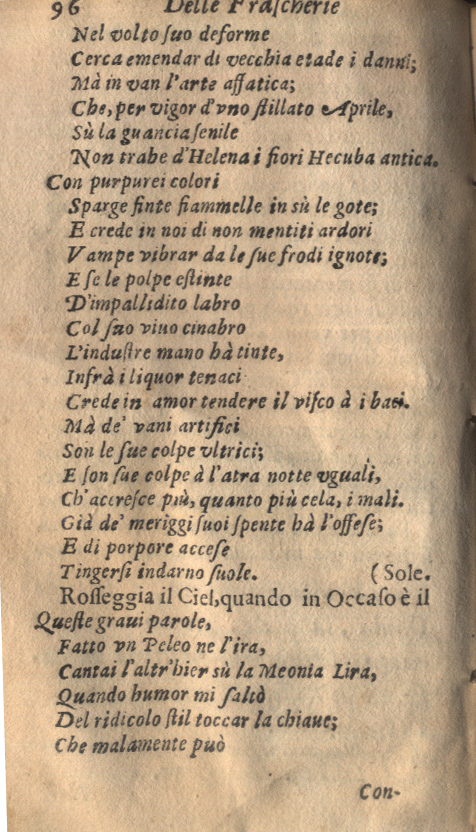 96 Delle Fraſcherie
Nel volto ſuo deforme
Cerca emendar di vecchia etade i danni;
Mà in van l'arte affatica;
Che, per vigor d'vno ſtillato Aprile,
Sù la guancia ſenile
Non trahe d'Helena i fiori Hecuba antica.
Con purpurei colori
Sparge finte fiammelle in sù le gote;
E crede in noi di non mentiti ardori
Vampe vibrar da le ſue frodi ignote;
E ſe le polpe eſtinte
D'impallidito labro
Col ſuo viuo cinabro
L'induſtre mano hà tinte,
Infrà i liquor tenaci
Crede in amor tendere il viſco à i baci.
Mà de' vani artifici
Son le ſue colpe vltrici;
E ſon ſue colpe à l'atra notte vguali,
Ch'accreſce più, quanto più cela, i mali.
Già de' meriggi ſuoi ſpente hà l'offeſe;
E di porpore acceſe
Tingerſi indarno ſuole. (Sole.
Roſſeggia il Ciel, quando in Occaſo è il
Queſte graui parole,
Fatto vn Peleo ne l'ira,
Cantai l'altr'hier sù la Meonia Lira,
Quando humor mi ſaltò
Del ridicolo ſtil toccar la chiaue;
Che malamente può
Con-